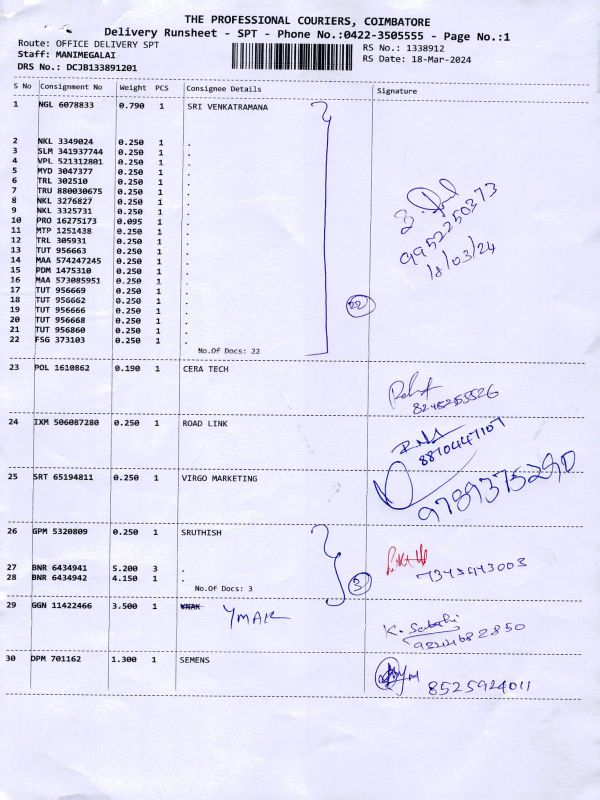 THE PROFESSIONAL COURIERS, COIMBATORE
Delivery Runsheet - SPT - Phone No.:0422-3505555 - Page No.:1
Route: OFFICE DELIVERY SPT RS No.: 1338912
Staff: MANIMEGALAI RS Date: 18-Mar-2024
DRS No.: DCJB133891201
S No Consignment No Weight PCS Consignee Details Signature
1 NGL 6078833 0.790 1 SRI VENKATRAMANA
2 NKL 3349024 0.250 1 .
3 SLM 341937744 0.250 1 .
4 VPL 521312801 0.250 1 .
5 MYD 3047377 0.250 1 .
6 TRL 302510 0.250 1 .
7 TRU 880030675 0.250 1 .
8 NKL 3276827 0.250 1 .
9 NKL 3325731 0.250 1 .
10 PRO 16275173 0.095 1 .
11 MTP 1251438 0.250 1 .
12 TRL 305931 0.250 1 .
13 TUT 956663 0.250 1 .
14 MAA 574247245 0.250 1 .
15 PDM 1475310 0.250 1 .
16 MAA 573085951 0.250 1 .
17 TUT 956669 0.250 1 .
18 TUT 956662 0.250 1 .
19 TUT 956666 0.250 1 .
20 TUT 956668 0.250 1 .
21 TUT 956860 0.250 1 .
22 FSG 373103 0.250 1 .
No.Of Docs: 22
22
9952250373
18/03/24
23 POL 1610862 0.190 1 CERA TECH
8248255526
24 IXM 506087280 0.250 1 ROAD LINK
8870447107
25 SRT 65194811 0.250 1 VIRGO MARKETING
9789375290
26 GPM 5320809 0.250 1 SRUTHISH
27 BNR 6434941 5.200 3 .
28 BNR 6434942 4.150 1 .
No.Of Docs: 3
3
7343443003
29 GGN 11422466 3.500 1 YMAK
30 DPM 701162 1.300 1 SEMENS
8525924011